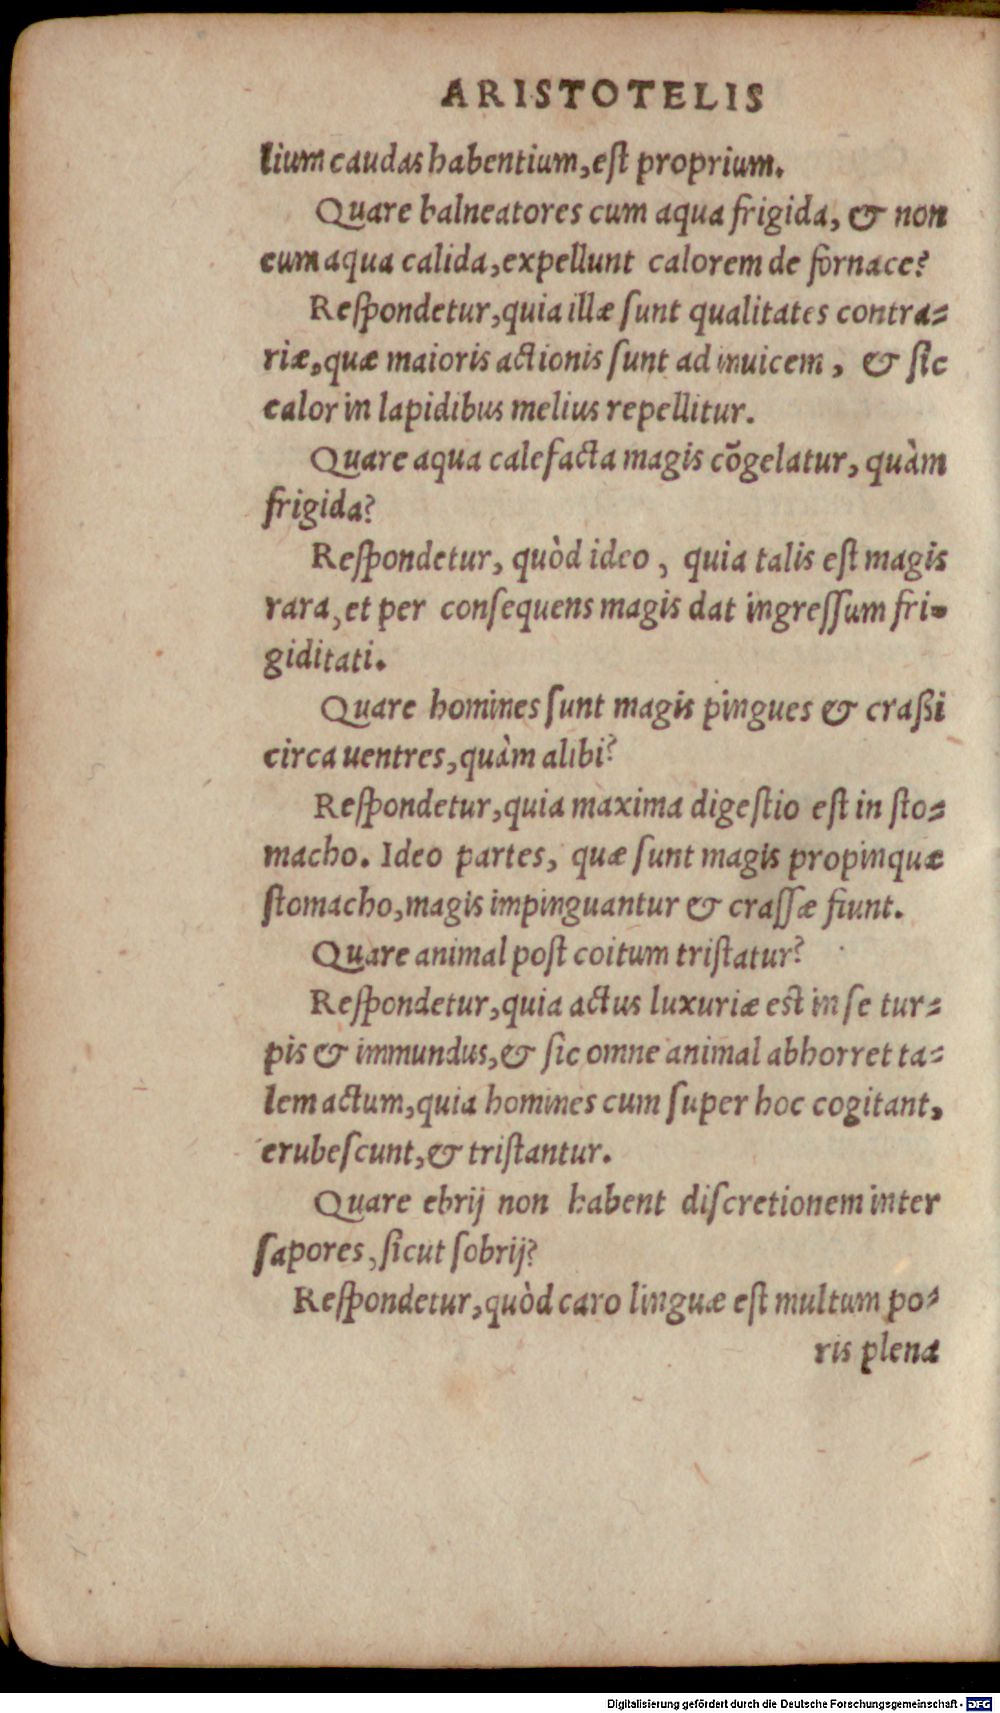 ARISTOTELIS
lium caudas habentium, est proprium.
Quare balneatores cum aqua frigida, & non
cum aqua calida, expellunt calorem de fornace?
Reſpondetur, quia illæ ſunt qualitates contra⸗
riæ, quæ maioris actionis ſunt ad inuicem, & ſic
calor in lapidibus melius repellitur.
Quare aqua calefacta magis cõgelatur, quàm
frigida?
Reſpondetur, quòd ideo, quia talis eſt magis
rara, et per conſequens magis dat ingreſſum fri⸗
giditati.
Quare homines ſunt magis pingues & craßi
circa uentres, quàm alibi?
Reſpondetur, quia maxima digeſtio eſt in ſto⸗
macho. Ideo partes, quæ ſunt magis propinquæ
ſtomacho, magis impinguantur & craſſæ fiunt.
Quare animal poſt coitum triſtatur?
Reſpondetur, quia actus luxuriæ eſt in ſe tur⸗
pis & immundus, & ſic omne animal abhorret ta⸗
lem actum, quia homines cum ſuper hoc cogitant,
erubeſcunt, & triſtantur.
Quare ebrij non habent diſcretionem inter
ſapores, ſicut ſobrij?
Reſpondetur, quòd caro linguæ eſt multum po⸗
ris plena
Digitalisierung gefördert durch die Deutsche Forschungsgemeinschaft - DFG